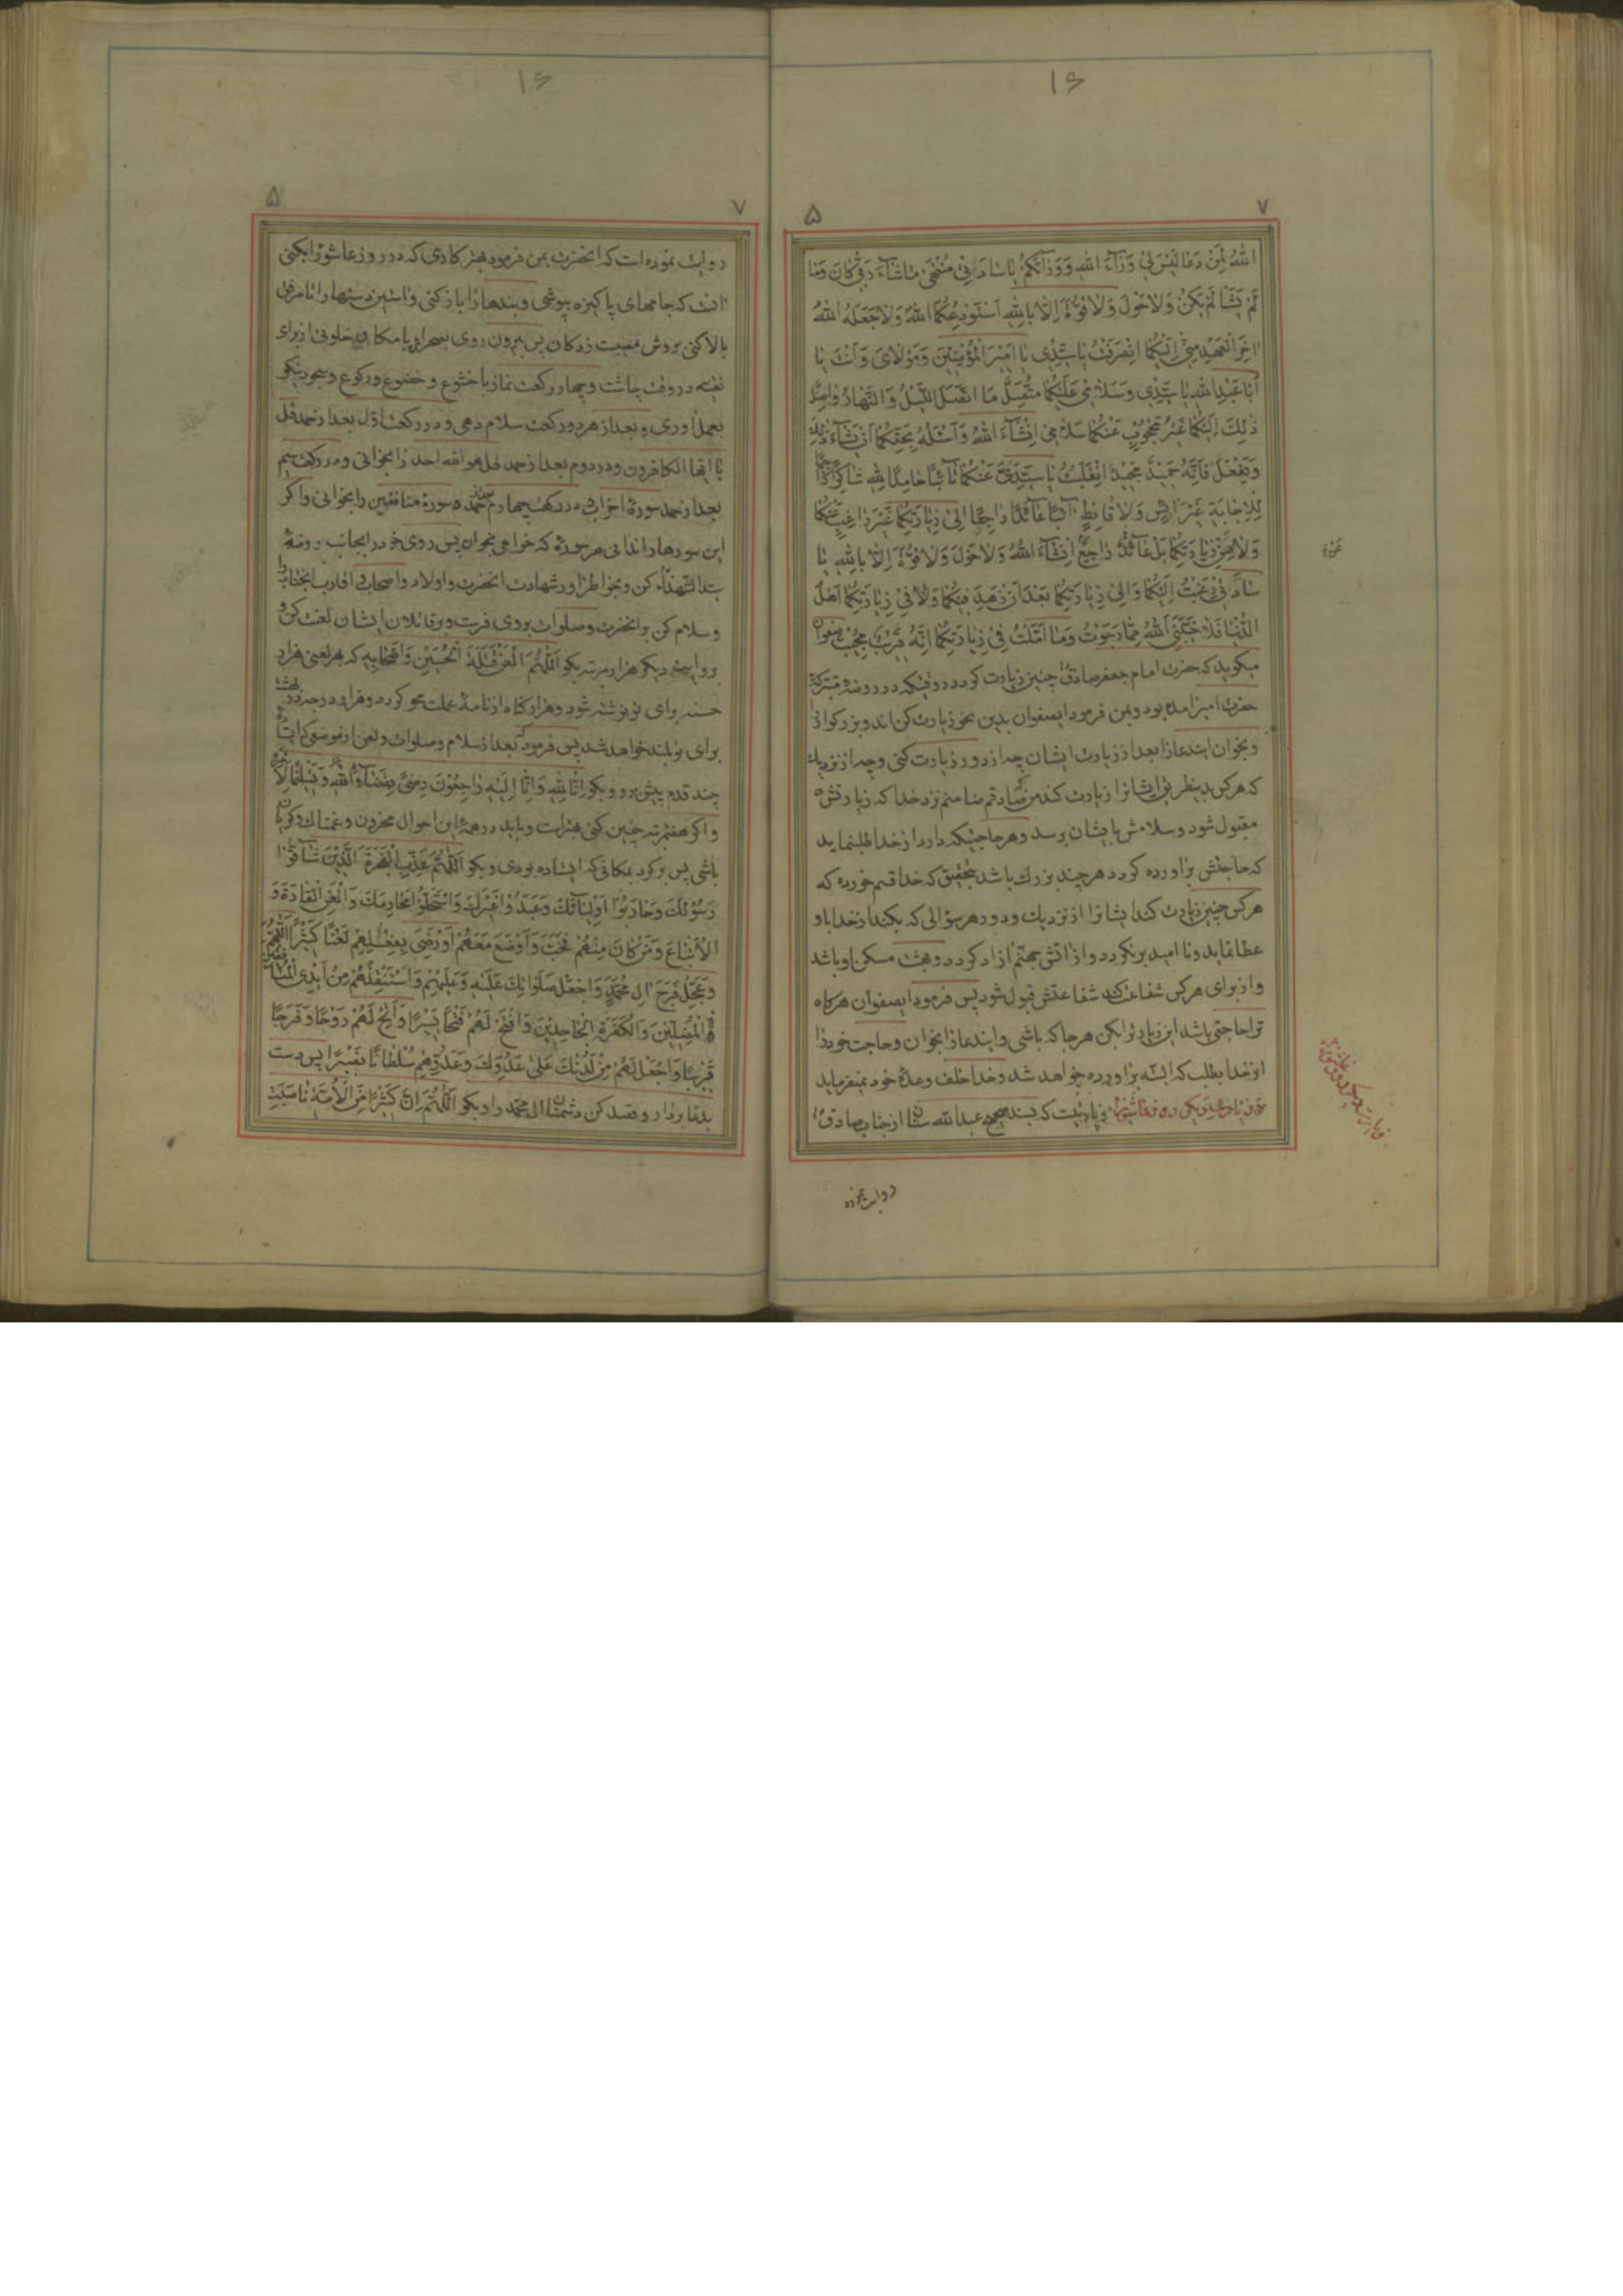 ۱۶
۷ ۵
اللهُ لِمَنْ دَعَا لَيْسَ لِي وَرَآءَ اللهِ وَوَرَآئَكُمْ يَا سَادَتِي مُنْتَهىٰ مَا شَآءَ رَبّي كَانَ وَمَا
لَمْ يَشَأْ لَمْ يَكُنْ وَلَا حَوْلَ وَلَا قُوَّةَ اِلَّا بِاللهِ اَسْتَوْدِعُكُمَا اللهَ وَلَا جَعَلَهُ اللهُ
اخِرَ الْعَهْدِ مِنّي اِلَيْكُمَا انْصَرَفْتُ يَا سَيِّدِي يَا اَمِيْرَ الْمُؤْمِنِيْنَ وَمَوْلَايَ وَاَنْتَ يَا
اَبَا عَبْدِ اللهِ يَا سَيِّدِي وَسَلَامِي عَلَيْكُمَا مُتَّصِلٌ مَا اتَّصَلَ اللَّيْلُ وَالنَّهَارُ وَاصِلٌ
ذٰلِكَ اِلَيْكُمَا غَيْرُ مَحْجُوبٍ عَنْكُمَا سَلَامِي اِنْشَآءَ اللهُ وَاَسْئَلُهُ بِحَقِّكُمَا اَنْ يَشَآءَ ذٰلِكَ
وَيَفْعَلَ فَاِنَّهُ حَمِيْدٌ مَجِيْدٌ انْقَلَبْتُ يَا سَيِّدَيَّ عَنْكُمَا تَآئِبًا حَامِدًا لِلّٰهِ شَاكِرًا رَاجِيًا
لِلْاِجَابَةِ غَيْرَ ايِسٍ وَلَا قَانِطٍ آئِبًا عَآئِدًا رَاجِعًا اِلىٰ زِيَارَتِكُمَا غَيْرَ رَاغِبٍ عَنْكُمَا
وَلَا مِنْ زِيَارَتِكُمَا بَلْ عَآئِدٌ رَاجِعٌ اِنْشَآءَ اللهُ وَلَا حَوْلَ وَلَا قُوَّةَ اِلَّا بِاللهِ يَا
سَادَتِي رَغِبْتُ اِلَيْكُمَا وَاِلىٰ زِيَارَتِكُمَا بَعْدَ اَنْ زَهَدَ فِيْكُمَا وَفِي زِيَارَتِكُمَا اَهْلُ
الدُّنْيَا فَلَا خَيَّبَنِي اللهُ مِمَّا رَجَوْتُ وَمَا اَمَّلْتُ فِي زِيَارَتِكُمَا اِنَّهُ قَرِيْبٌ مُجِيْبٌ صفوان
ميكويد كه حضرت امام جعفر صادق چنين زيارت كرد در وقتيكه در روضه متبركه
حضرت امير امده بود وبمن فرمود ايصفوان بدين نحو زيارت كن اندو بزركوار را
وبخوان ايندعا را بعد از زيارت ايشان چه از دور زيارت كنى وچه از نزديك
كه هركس بدينطريق ايشانرا زيارت كند من كه صادقم ضامنم نزد خدا كه زيارتش
مقبول شود وسلامش بايشان برسد وهر حاجتيكه دارد از خدا طلب نمايد
كه حاجتش براورده كردد هر چند بزرك باشد بتحقيق كه خدا قسم خورده كه
هركس چنين زيارت كند ايشانرا از نزديك ودور هر سؤالى كه بكند از خدا باو
عطا نمايد ونا اميد برنكردد واز اتش جهنم ازاد كردد وبهشت مسكن او باشد
واز براى هركس شفاعت كند شفاعتش قبول شود پس فرمود ايصفوان هركاه
ترا حاجتى باشد اين زيارترا بكن هرجا كه باشى وايندعا را بخوان وحاجت خود را
از خدا بطلب كه البته براورده خواهد شد وخدا خلف وعده خود نميفرمايد
زيارتيست كه بسند صحيح عبدالله سنان از جناب صادق
روايت نموده
۱۶
۷ ۵
روايت نموده است كه انحضرت بمن فرمود بهتر كارى كه در روز عاشورا بكنى
انست كه جامهاى پاكيزه بپوشى وبندها را باز كنى واستين دستها را تا مرفق
بالا كنى بروش مصيبت زدكان پس بيرون روى بصحراى يا مكان خلوتى از براى
نفسه در وقت چاشت وچهار ركعت نماز با خشوع وخضوع وركوع وسجود نيكو
بعمل اورى وبعد از هر دو ركعت سلام دهى ودر ركعت اول بعد از حمد قل
يا ايها الكافرون ودر دوم بعد از حمد قل هو الله احد را بخوانى ودر ركعت سيم
بعد از حمد سوره احزاب ودر ركعت چهارم بعد از حمد سوره منافقين را بخوانى واكر
اين سورها را ندانى هر سوره كه خواهى بخوان پس روى خود را بجانب روضه
سيد الشهداء كن وبخاطر اور شهادت انحضرت واولاد واصحاب واقارب انجناب را
وسلام كن بر انحضرت وصلوات بروى فرست وبر قاتلان ايشان لعنت كن و
بروايت ديكر هزار مرتبه بكو اَللّٰهُمَّ الْعَنْ قَتَلَةَ الْحُسَيْنِ وَاَصْحَابِهِ كه هر لعنى هزار
حسنه براى تو نوشته شود وهزار كناه از نامه عملت محو كردد وهزار درجه در بهشت
براى تو بلند خواهد شد پس فرمود كه بعد از سلام وصلوات ولعن از موضعى كه ايستاده
چند قدم پيش برو وبكو اِنَّا لِلّٰهِ وَاِنَّا اِلَيْهِ رَاجِعُوْنَ رِضًى بِقَضَآءِ اللهِ وَتَسْلِيْمًا لِاَمْرِهِ
واكر هفتمرتبه چنين كنى بهتر است وبايد در همه اين احوال محزون وغمناك وكريان
باشى پس بركرد بمكانى كه ايستاده بودى وبكو اَللّٰهُمَّ عَذِّبِ الْفَجَرَةَ الَّذِيْنَ شَآقُّوْا
رَسُوْلَكَ وَحَارَبُوْا اَوْلِيَآئَكَ وَعَبَدُوْا غَيْرَكَ وَاسْتَحَلُّوْا مَحَارِمَكَ وَالْعَنِ الْقَادَةَ وَ
الْاَتْبَاعَ وَمَنْ كَانَ مِنْهُمْ فَخَبَّ وَاَوْضَعَ مَعَهُمْ اَوْ رَضِيَ بِفِعْلِهِمْ لَعْنًا كَثِيْرًا اَللّٰهُمَّ
وَعَجِّلْ فَرَجَ الِ مُحَمَّدٍ وَاجْعَلْ صَلَوَاتِكَ عَلَيْهِ وَعَلَيْهِمْ وَاسْتَنْقِذْهُمْ مِنْ اَيْدِي الْمُنَافِقِيْنَ
الْمُضِلِّيْنَ وَالْكَفَرَةِ الْجَاحِدِيْنَ وَافْتَحْ لَهُمْ فَتْحًا يَسِيْرًا وَاَتِحْ لَهُمْ رَوْحًا وَفَرَجًا
قَرِيْبًا وَاجْعَلْ لَهُمْ مِنْ لَدُنْكَ عَلىٰ عَدُوِّكَ وَعَدُوِّهِمْ سُلْطَانًا نَصِيْرًا پس دست
بدعا بردار وقصد كن دشمنان ال محمد را وبكو اَللّٰهُمَّ اِنَّ كَثِيْرًا مِنَ الْاُمَّةِ نَاصَبَتِ